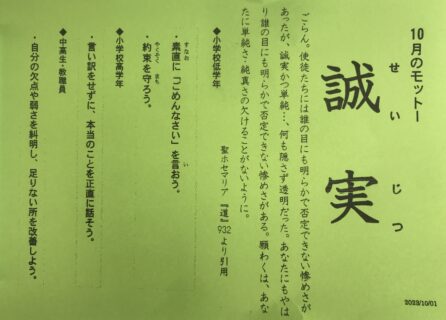 10月のモットー
せいじつ
誠実
2023/10/01
ごらん。使徒たちには誰の目にも明らかで否定できない惨めさが
あったが、誠実かつ単純…、何も隠さず透明だった。あなたにもやは
り誰の目にも明らかで否定できない惨めさがある。願わくは、あな
たに単純さ・純真さの欠けることがないように。
聖ホセマリア『道』932より引用
◆小学校低学年
・素直に「ごめんなさい」を言おう。
すなお
い
・約束を守ろう。
やくそく
まも
◆小学校高学年
・言い訳をせずに、本当のことを正直に話そう。
◆中高生・教職員
・自分の欠点や弱さを糾明し、足りない所を改善しよう。